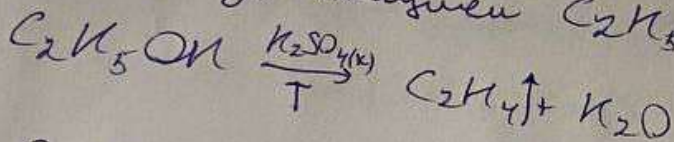 C₂H₅
C₂H₅OH H₂SO₄(к) T C₂H₄↑ + H₂O